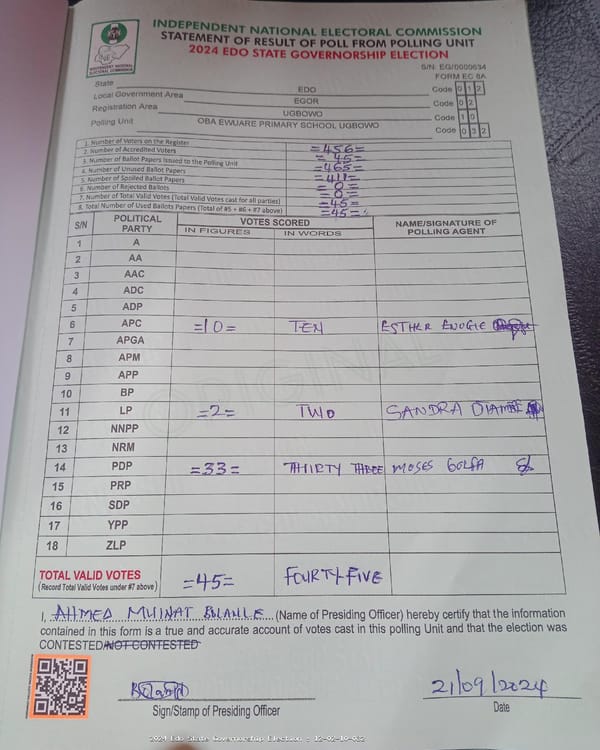 INDEPENDENT NATIONAL ELECTORAL COMMISSION
STATEMENT OF RESULT OF POLL FROM POLLING UNIT
2024 EDO STATE GOVERNORSHIP ELECTION
S/N: EG/0000634
FORM EC 8A
State EDO Code 0 1 2
Local Government Area EGOR Code 0 2
Registration Area UGBOWO Code 1 0
Polling Unit OBA EWUARE PRIMARY SCHOOL UGBOWO Code 0 3 2
1. Number of Voters on the Register =456=
2. Number of Accredited Voters =45=
3. Number of Ballot Papers Issued to the Polling Unit =465=
4. Number of Unused Ballot Papers =411=
5. Number of Spoiled Ballot Papers =0=
6. Number of Rejected Ballots =0=
7. Number of Total Valid Votes (Total Valid Votes cast for all parties) =45=
8. Total Number of Used Ballots Papers (Total of #5 + #6 + #7 above) =45=
S/N POLITICAL PARTY VOTES SCORED NAME/SIGNATURE OF POLLING AGENT
IN FIGURES IN WORDS
1 A
2 AA
3 AAC
4 ADC
5 ADP
6 APC =10= TEN ESTHER ENOGIE
7 APGA
8 APM
9 APP
10 BP
11 LP =2= TWO SANDRA
12 NNPP
13 NRM
14 PDP =33= THIRTY THREE MOSES
15 PRP
16 SDP
17 YPP
18 ZLP
ORIGINAL
TOTAL VALID VOTES =45= FOURTY FIVE
(Record Total Valid Votes under #7 above)
I, AHMED MUINAT (Name of Presiding Officer) hereby certify that the information
contained in this form is a true and accurate account of votes cast in this polling Unit and that the election was
CONTESTED/NOT CONTESTED
21/09/2024
Sign/Stamp of Presiding Officer Date
2024 Edo State Governorship Election : 12-02-10-032